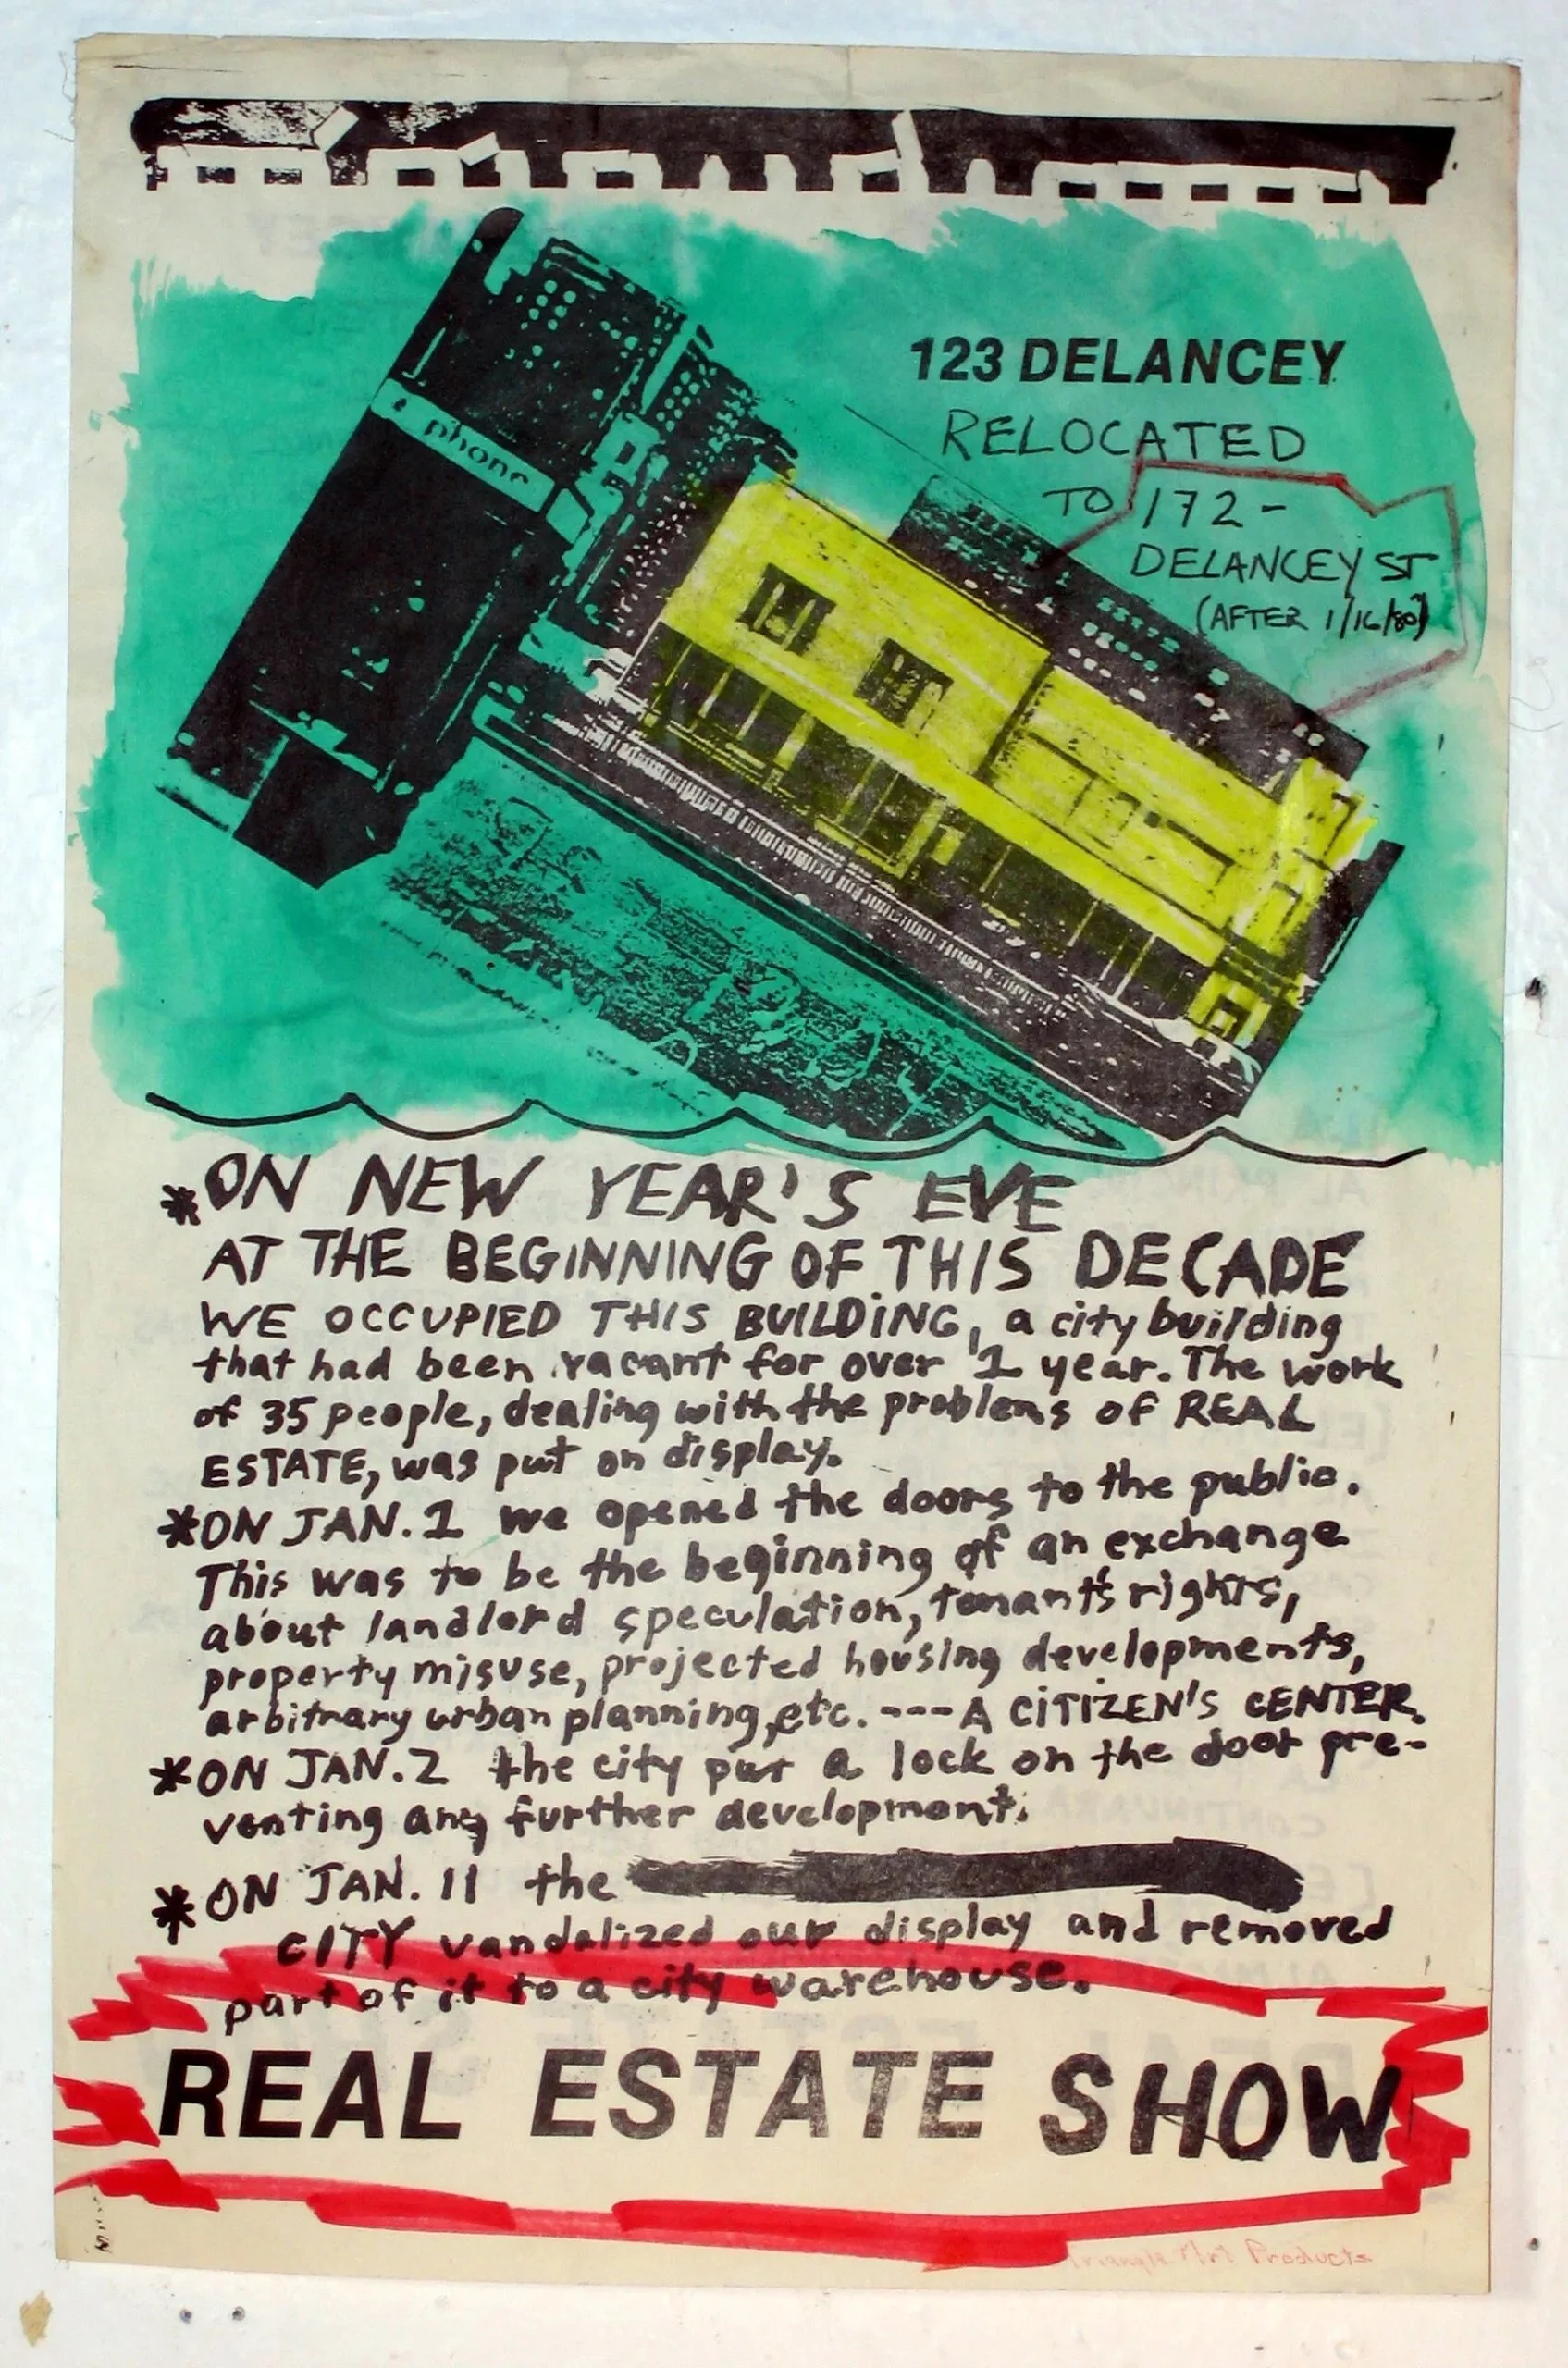 phone
123 DELANCEY
RELOCATED
TO 172-
DELANCEY ST
(AFTER 1/16/80)
*ON NEW YEAR'S EVE
AT THE BEGINNING OF THIS DECADE
WE OCCUPIED THIS BUILDING, a city building
that had been vacant for over 1 year. The work
of 35 people, dealing with the problems of REAL
ESTATE, was put on display.
*ON JAN. 1 we opened the doors to the public.
This was to be the beginning of an exchange
about landlord speculation, tenant's rights,
property misuse, projected housing developments,
arbitrary urban planning, etc. ---A CITIZEN'S CENTER.
*ON JAN. 2 the city put a lock on the door pre-
venting any further development.
*ON JAN. 11 the
CITY vandalized our display and removed
part of it to a city warehouse.
REAL ESTATE SHOW
Triangle Art Products